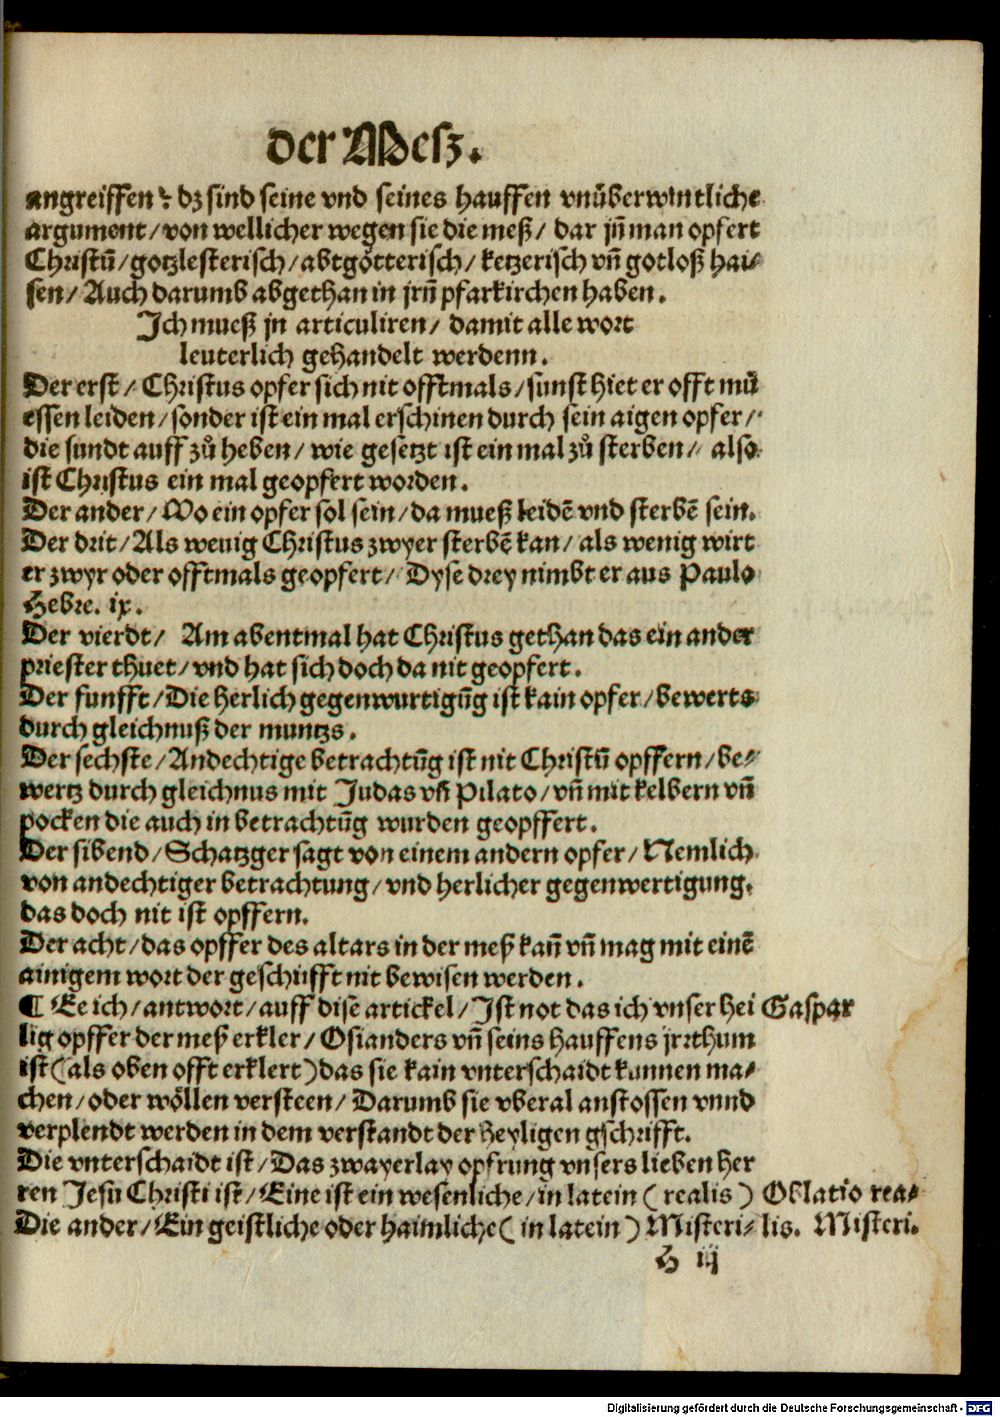 der Mesz.
angreiffen: dz sind seine vnd seines hauffen vnüberwintliche
argument/ von wellicher wegen sie die meß/ dar jn̄ man opfert
Christū/ gotzlesterisch/ abtgötterisch/ ketzerisch vn̄ gotloß hai-
sen/ Auch darumb abgethan in jrn̄ pfarkirchen haben.
Ich mueß jn articuliren/ damit alle wort
leuterlich gehandelt werdenn.
Der erst/ Christus opfer sich nit offtmals/ sunst hiet er offt mů
essen leiden/ sonder ist ein mal erschinen durch sein aigen opfer/
die sundt auff zů heben/ wie gesetzt ist ein mal zů sterben/ also
ist Christus ein mal geopfert worden.
Der ander/ Wo ein opfer sol sein/ da mueß leidē vnd sterbē sein.
Der drit/ Als wenig Christus zwyer sterbē kan/ als wenig wirt
er zwyr oder offtmals geopfert/ Dyse drey nimbt er aus Paulo
Hebre. ix.
Der vierdt/ Am abentmal hat Christus gethan das ein ander
priester thuet/ vnd hat sich doch da nit geopfert.
Der funfft/ Die herlich gegenwurtigūg ist kain opfer/ bewerts
durch gleichnuß der muntzs.
Der sechste/ Andechtige betrachtūg ist nit Christū opffern/ be-
wertz durch gleichnus mit Judas vn̄ Pilato/ vn̄ mit kelbern vn̄
pocken die auch in betrachtūg wurden geopffert.
Der sibend/ Schatzger sagt von einem andern opfer/ Nemlich
von andechtiger betrachtung/ vnd herlicher gegenwertigung.
das doch nit ist opffern.
Der acht/ das opffer des altars in der meß kan̄ vn̄ mag mit einē
ainigem wort der geschrifft nit bewisen werden.
¶ Ee ich/ antwort/ auff dise artickel/ Ist not das ich vnser hei Gaspar
lig opffer der meß erkler/ Osianders vn̄ seins hauffens jrrthum
ist (als oben offt erklert) das sie kain vnterschaidt kunnen ma-
chen/ oder wöllen versteen/ Darumb sie vberal anstossen vnnd
verplendt werden in dem verstandt der heyligen gschrifft.
Die vnterschaidt ist/ Das zwayerlay opfrung vnsers lieben her
ren Jesu Christi ist/ Eine ist ein wesenliche/ in latein (realis) Oblatio rea-
Die ander/ Ein geistliche oder haimliche (in latein) Misteri- lis. Misteri.
H iij
Digitalisierung gefördert durch die Deutsche Forschungsgemeinschaft - DFG